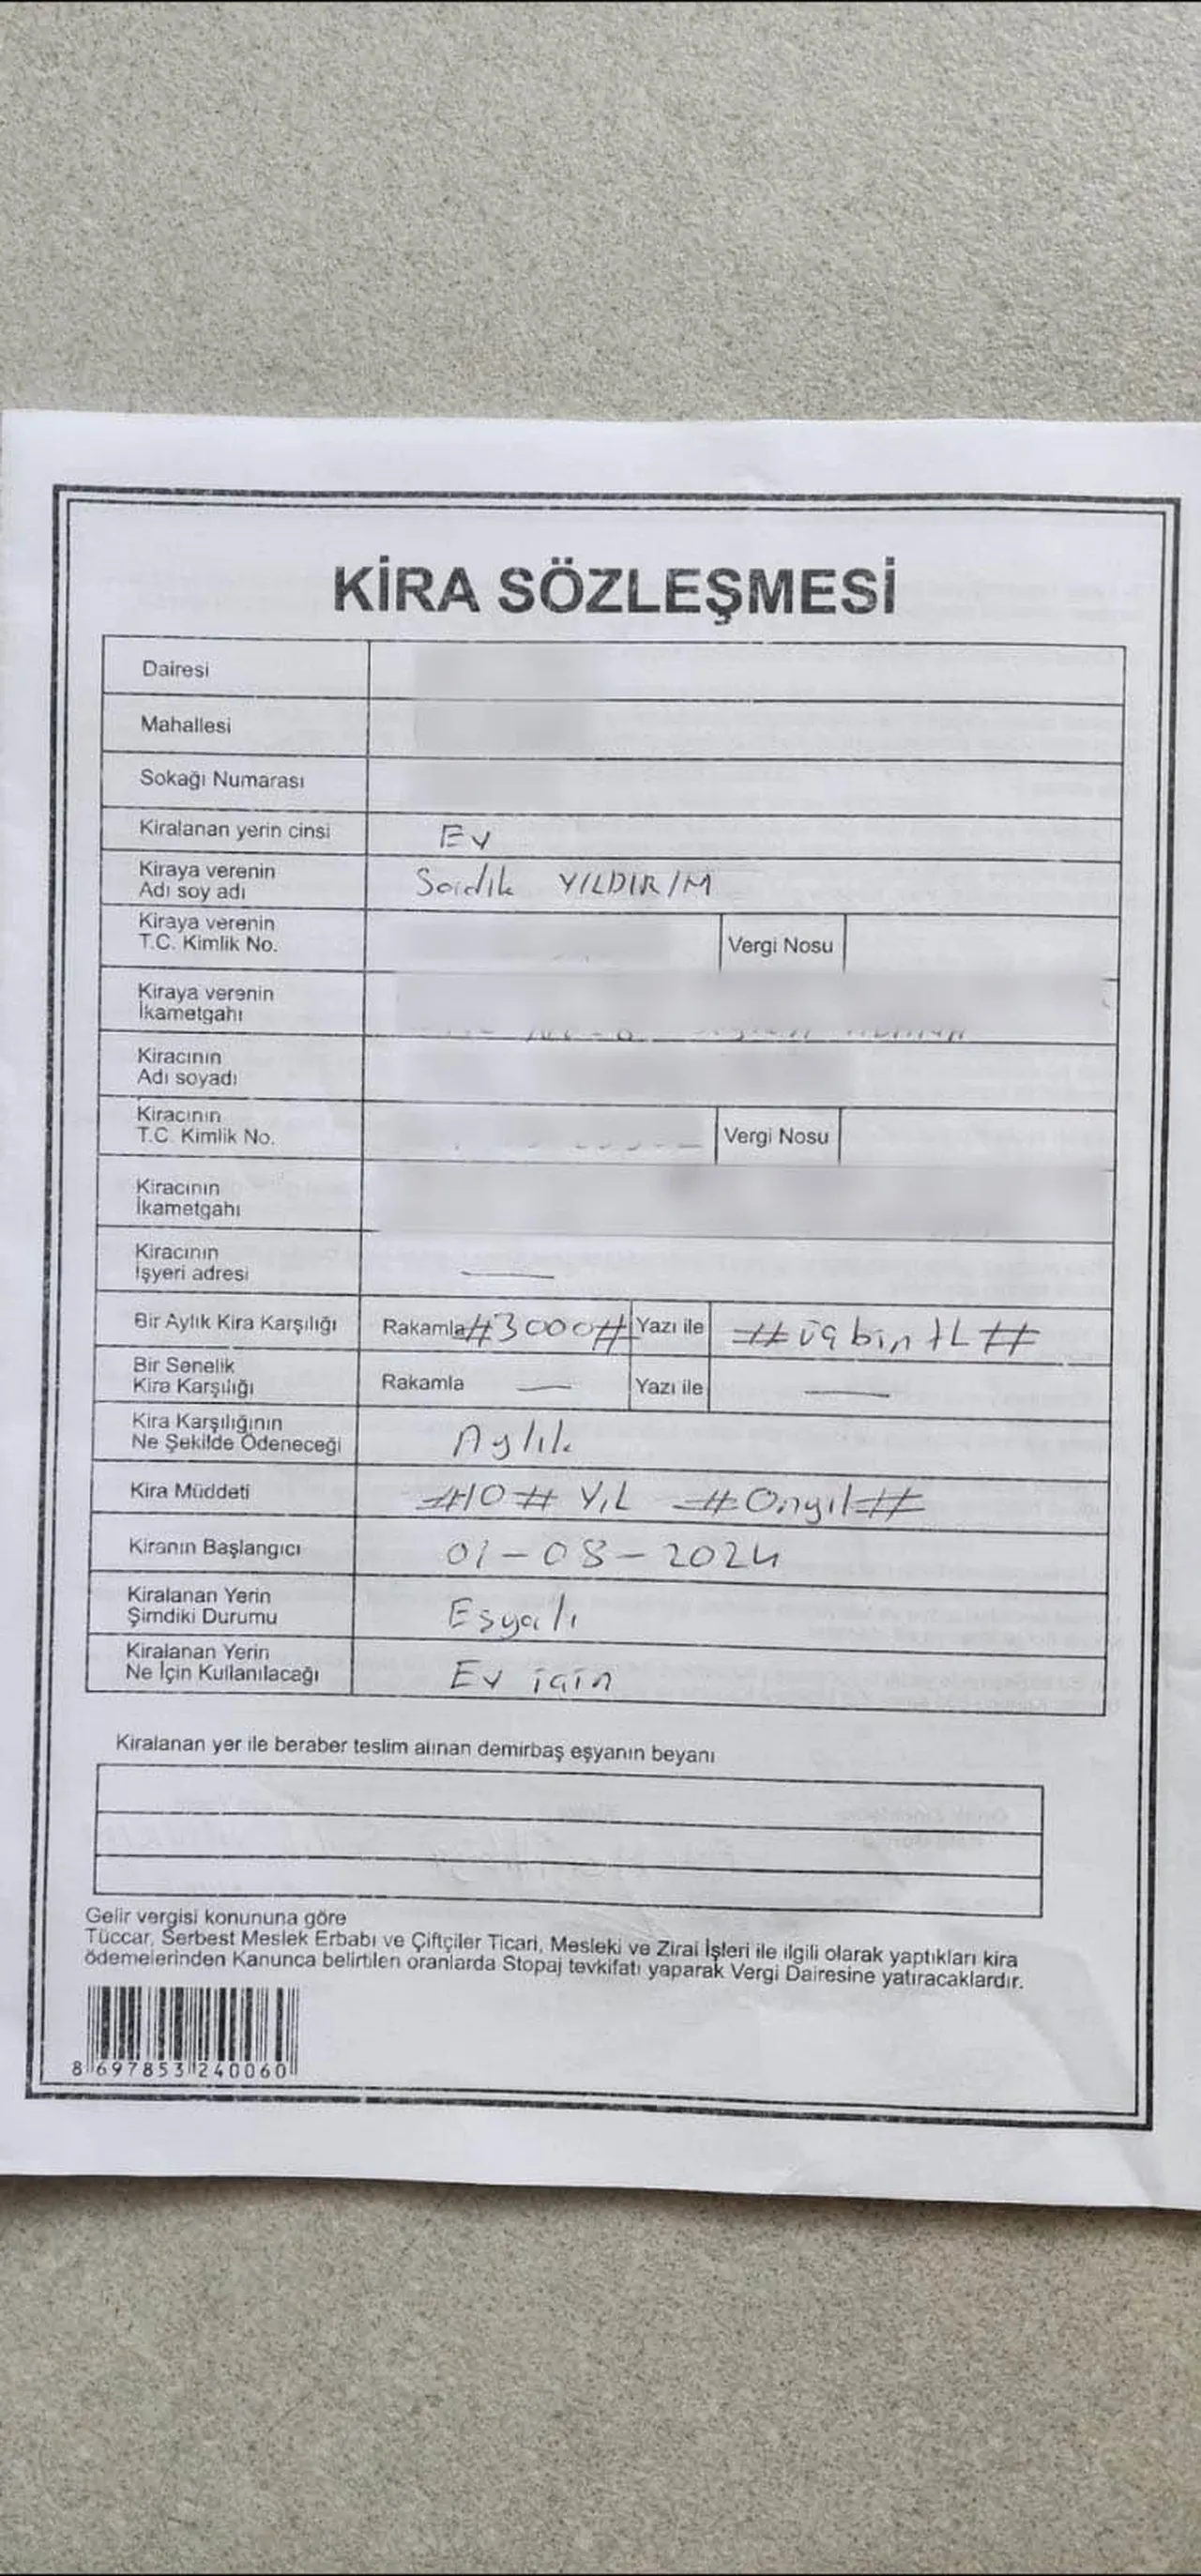 KİRA SÖZLEŞMESİ
Dairesi
Mahallesi
Sokağı Numarası
Kiralanan yerin cinsi Ev
Kiraya verenin
Adı soy adı Sadık YILDIRIM
Kiraya verenin
T.C. Kimlik No. Vergi Nosu
Kiraya verenin
İkametgahı
Kiracının
Adı soyadı
Kiracının
T.C. Kimlik No. Vergi Nosu
Kiracının
İkametgahı
Kiracının
İşyeri adresi —
Bir Aylık Kira Karşılığı Rakamla #3000# Yazı ile #üçbin tL#
Bir Senelik
Kira Karşılığı Rakamla — Yazı ile —
Kira Karşılığının
Ne Şekilde Ödeneceği Aylık
Kira Müddeti #10# YıL #Onyıl#
Kiranın Başlangıcı 01-08-2024
Kiralanan Yerin
Şimdiki Durumu Eşyalı
Kiralanan Yerin
Ne İçin Kullanılacağı Ev için
Kiralanan yer ile beraber teslim alınan demirbaş eşyanın beyanı
Gelir vergisi konununa göre
Tüccar, Serbest Meslek Erbabı ve Çiftçiler Ticari, Mesleki ve Zirai İşleri ile ilgili olarak yaptıkları kira
ödemelerinden Kanunca belirtilen oranlarda Stopaj tevkifatı yaparak Vergi Dairesine yatıracaklardır.
8 697853 240060